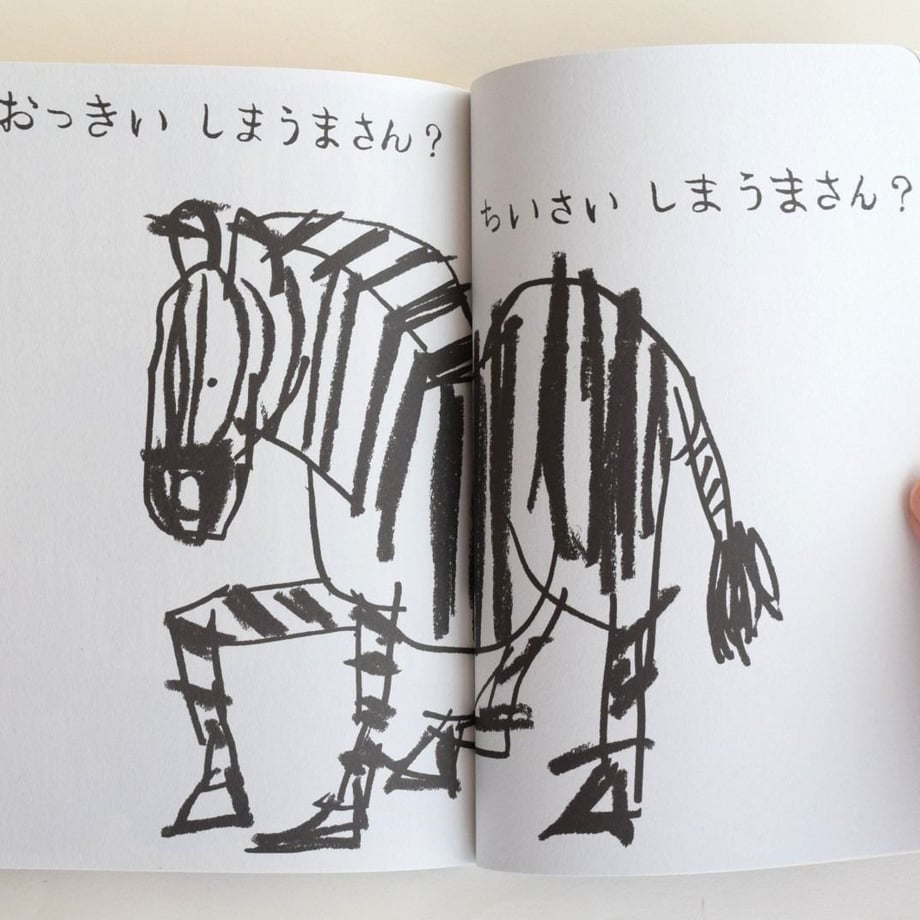 おっきい しまうまさん？
ちいさい しまうまさん？